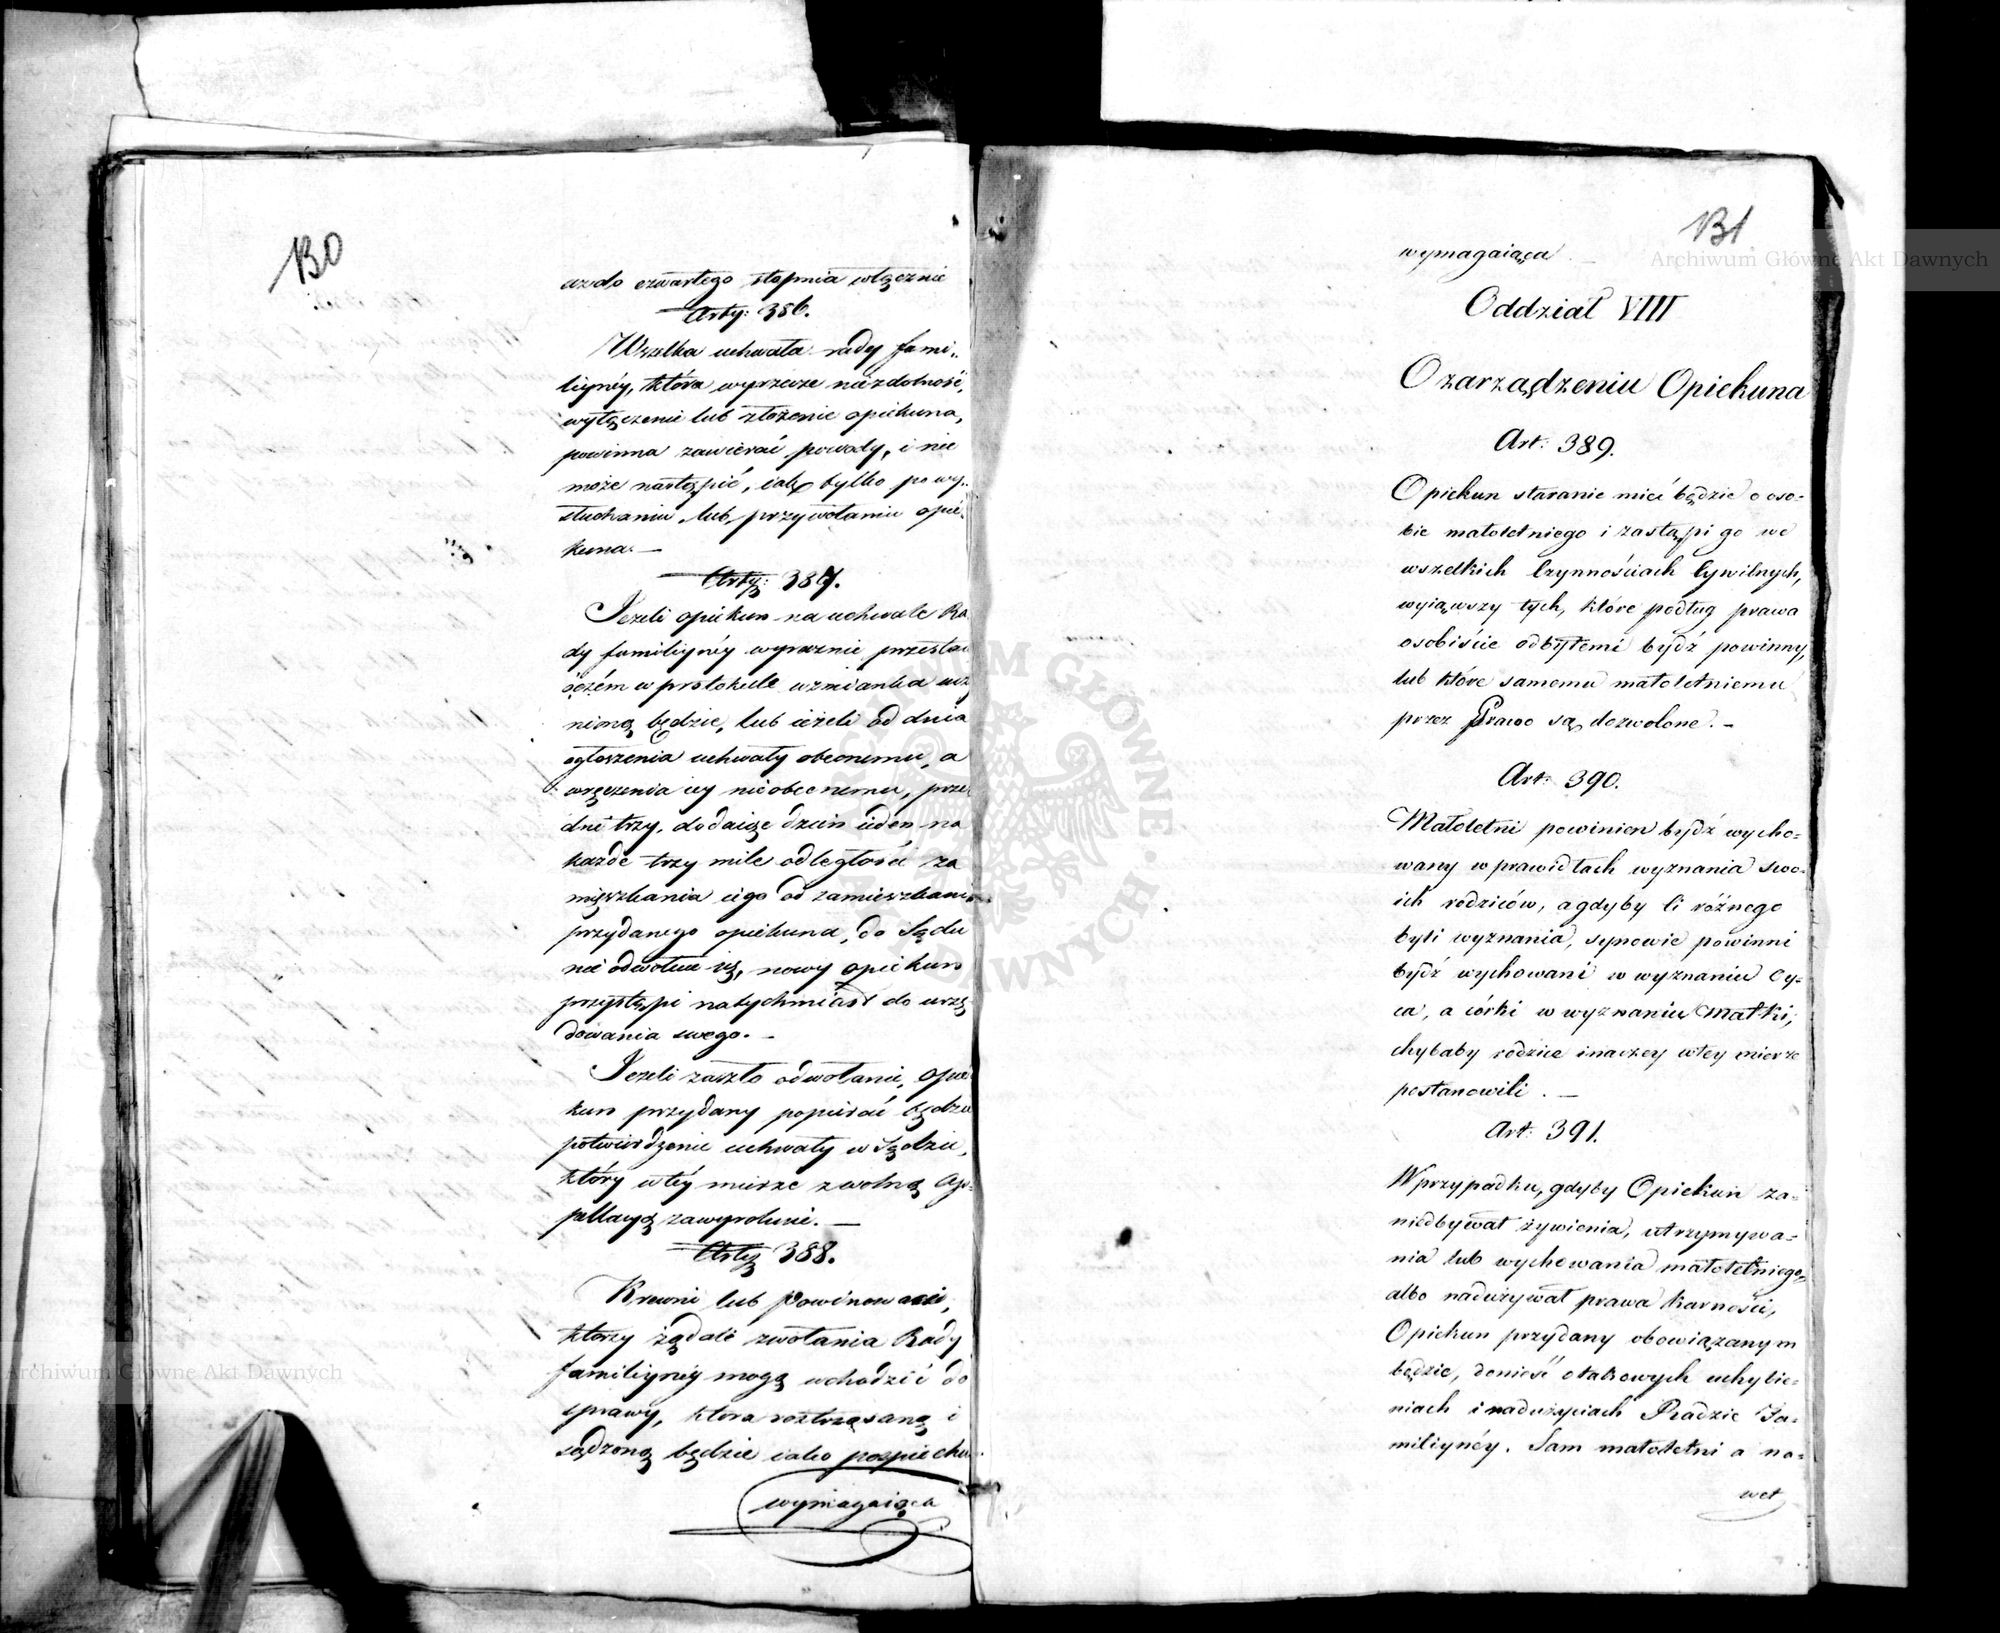 130
aż do czwartego stopnia włącznie
Arty: 386.
Wszelka uchwała rady fami„
liynéy, która wyrzecze niezdolność,
wyłączenie lub złożenie opiekuna,
powinna zawierać powody, i nie
może nastąpić, iak tylko po wy„
słuchaniu lub przywołaniu opie„
kuna. —
Arty: 387.
Jeżeli opiekun na uchwale Ra
dy familiynéy wyraznie przesta
o czém w protokule wzmianka uczy
nioną będzie, lub ieżeli od dnia
ogłoszenia uchwały obecnemu, a
wręczenia iey nieobecnemu, przez
dni trzy, dodaiąc dzień ieden na
każde trzy mile odległości za
mięszkania iego od zamieszkania
przydanego opiekuna, do Sądu
nie odwoła się, nowy opiekun
przystąpi natychmiast do urzę
dowania swego. —
Jeżeli zaszło odwołanie, opie
kun przydany popierać będzie
potwierdzenie uchwały w Sądzie,
który w téy mierze z wolną Ap„
pellacyą zawyrokuie. —
Arty 388.
Krewni lub Powinowaci,
którzy żądali zwołania Rady
familiynéy mogą wchodzić do
sprawy, która roztrząsaną i
sądzoną będzie iako pospiechu
wymagaiąca
131
wymagaiąca —
Oddział VIII
O zarządzeniu Opiekuna
Art: 389.
Opiekun staranie mieć będzie o oso=
bie małoletniego i zastąpi go we
wszelkich Czynnościach Cywilnych,
wyiąwszy tych, które podług prawa
osobiście odbytemi bydź powinny,
lub które samemu małoletniemu
przez Prawo są dozwolone. —
Art: 390.
Małoletni powinien bydź wycho=
wany w prawidłach wyznania swo=
ich rodziców, a gdyby ci różnego
byli wyznania, synowie powinni
bydź wychowani w wyznaniu Oy=
ca, a córki w wyznaniu Matki,
chybaby rodzice inaczey w tey mierze
postanowili. —
Art: 391.
W przypadku, gdyby Opiekun za=
niedbywał żywienia, utrzymywa=
nia lub wychowania małoletniego,
albo nadużywał prawa karności,
Opiekun przydany obowiązanym
będzie, donieść o takowych uchybie=
niach i nadużyciach Radzie Fa=
miliynéy. Sam małoletni a na=
wet
Archiwum Główne Akt Dawnych
Archiwum Główne Akt Dawnych
ARCHIWUM GŁÓWNE AKT DAWNYCH